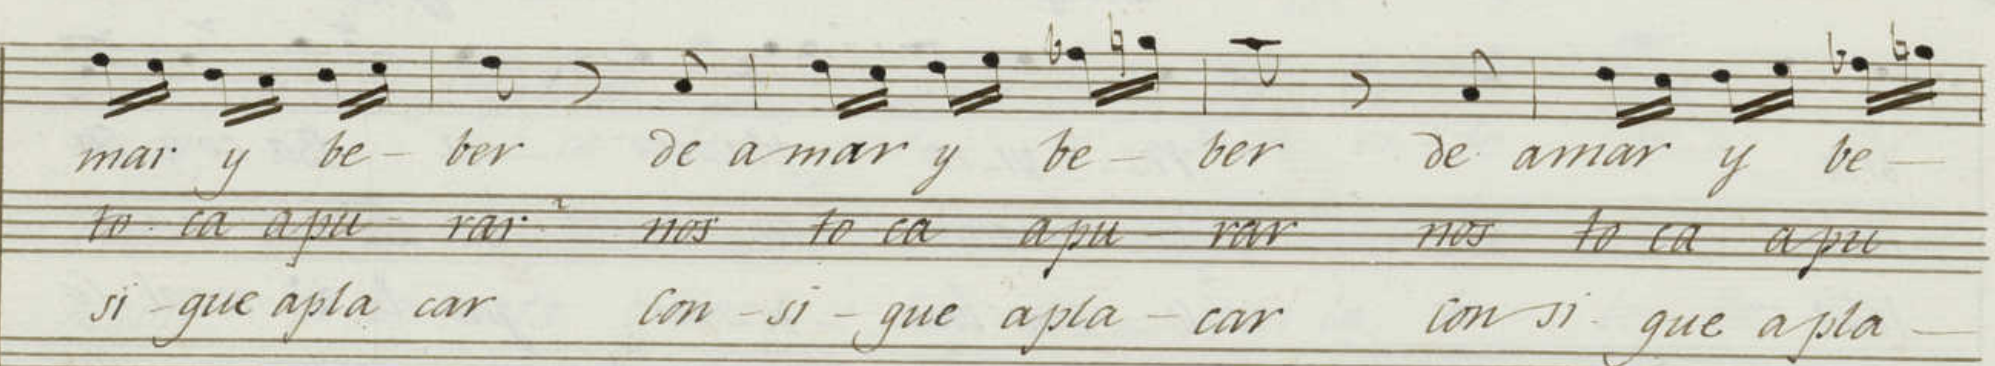 mar y be - ber de amar y be - ber de amar y be -
to - ca apu - rar nos to ca apu - rar nos to ca apu
si - gue apla car Con - si - gue apla - car Con si - gue apla -